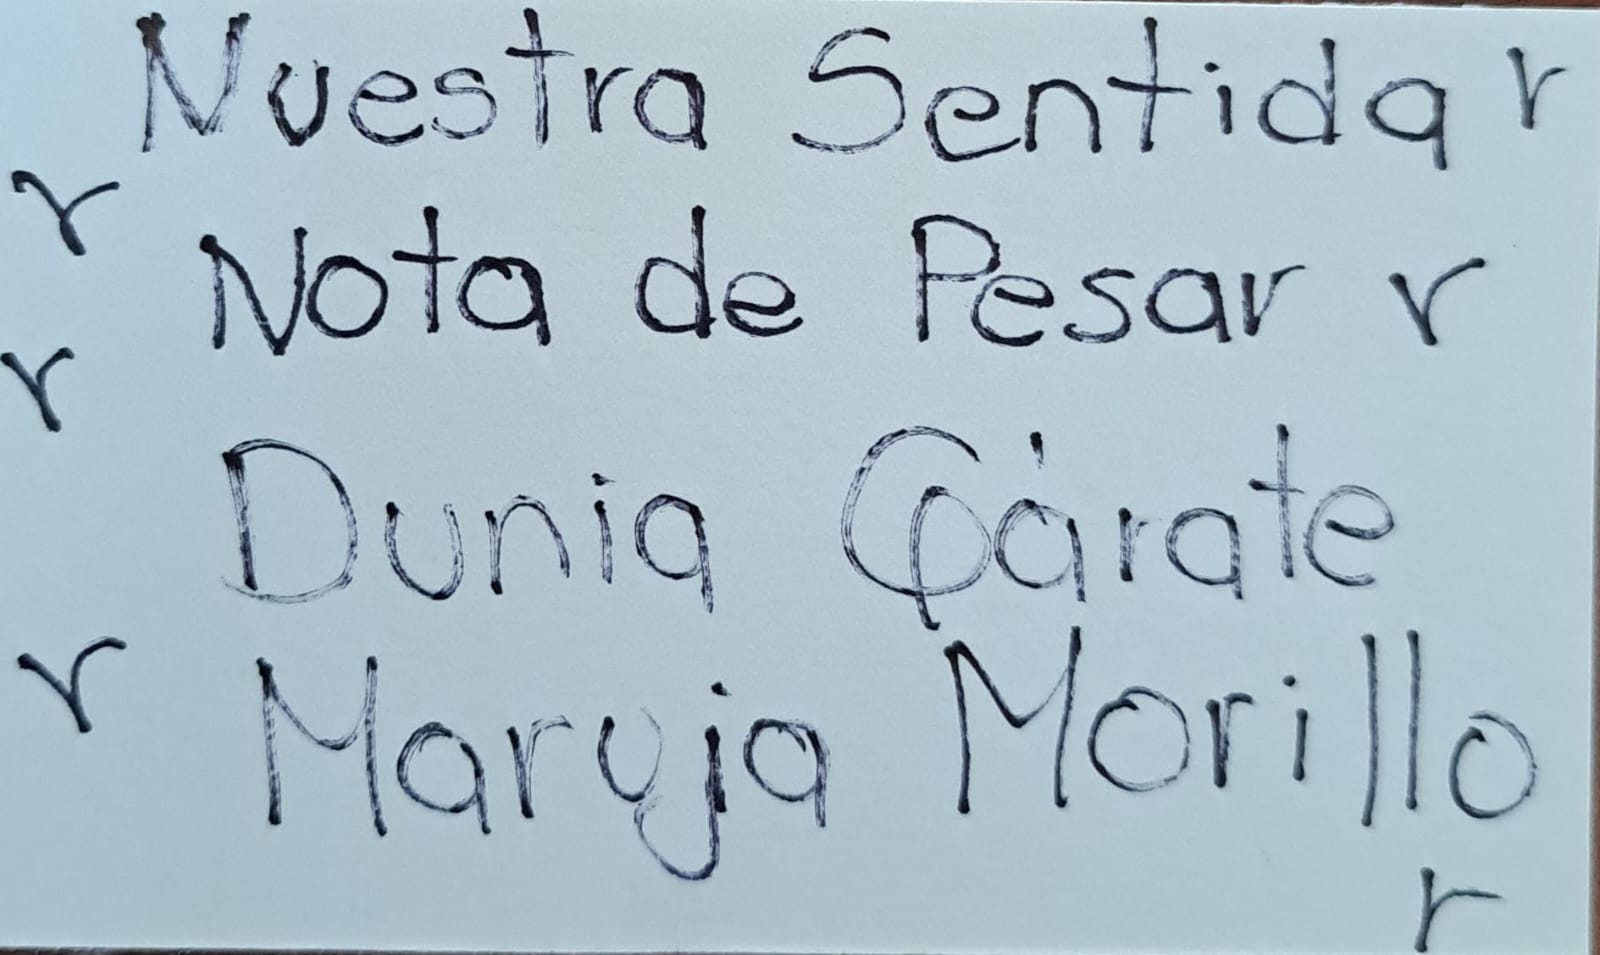 Nuestra Sentida r
r
Nota de Pesar r
r
Dunia Gárate
r Maruja Morillo
r